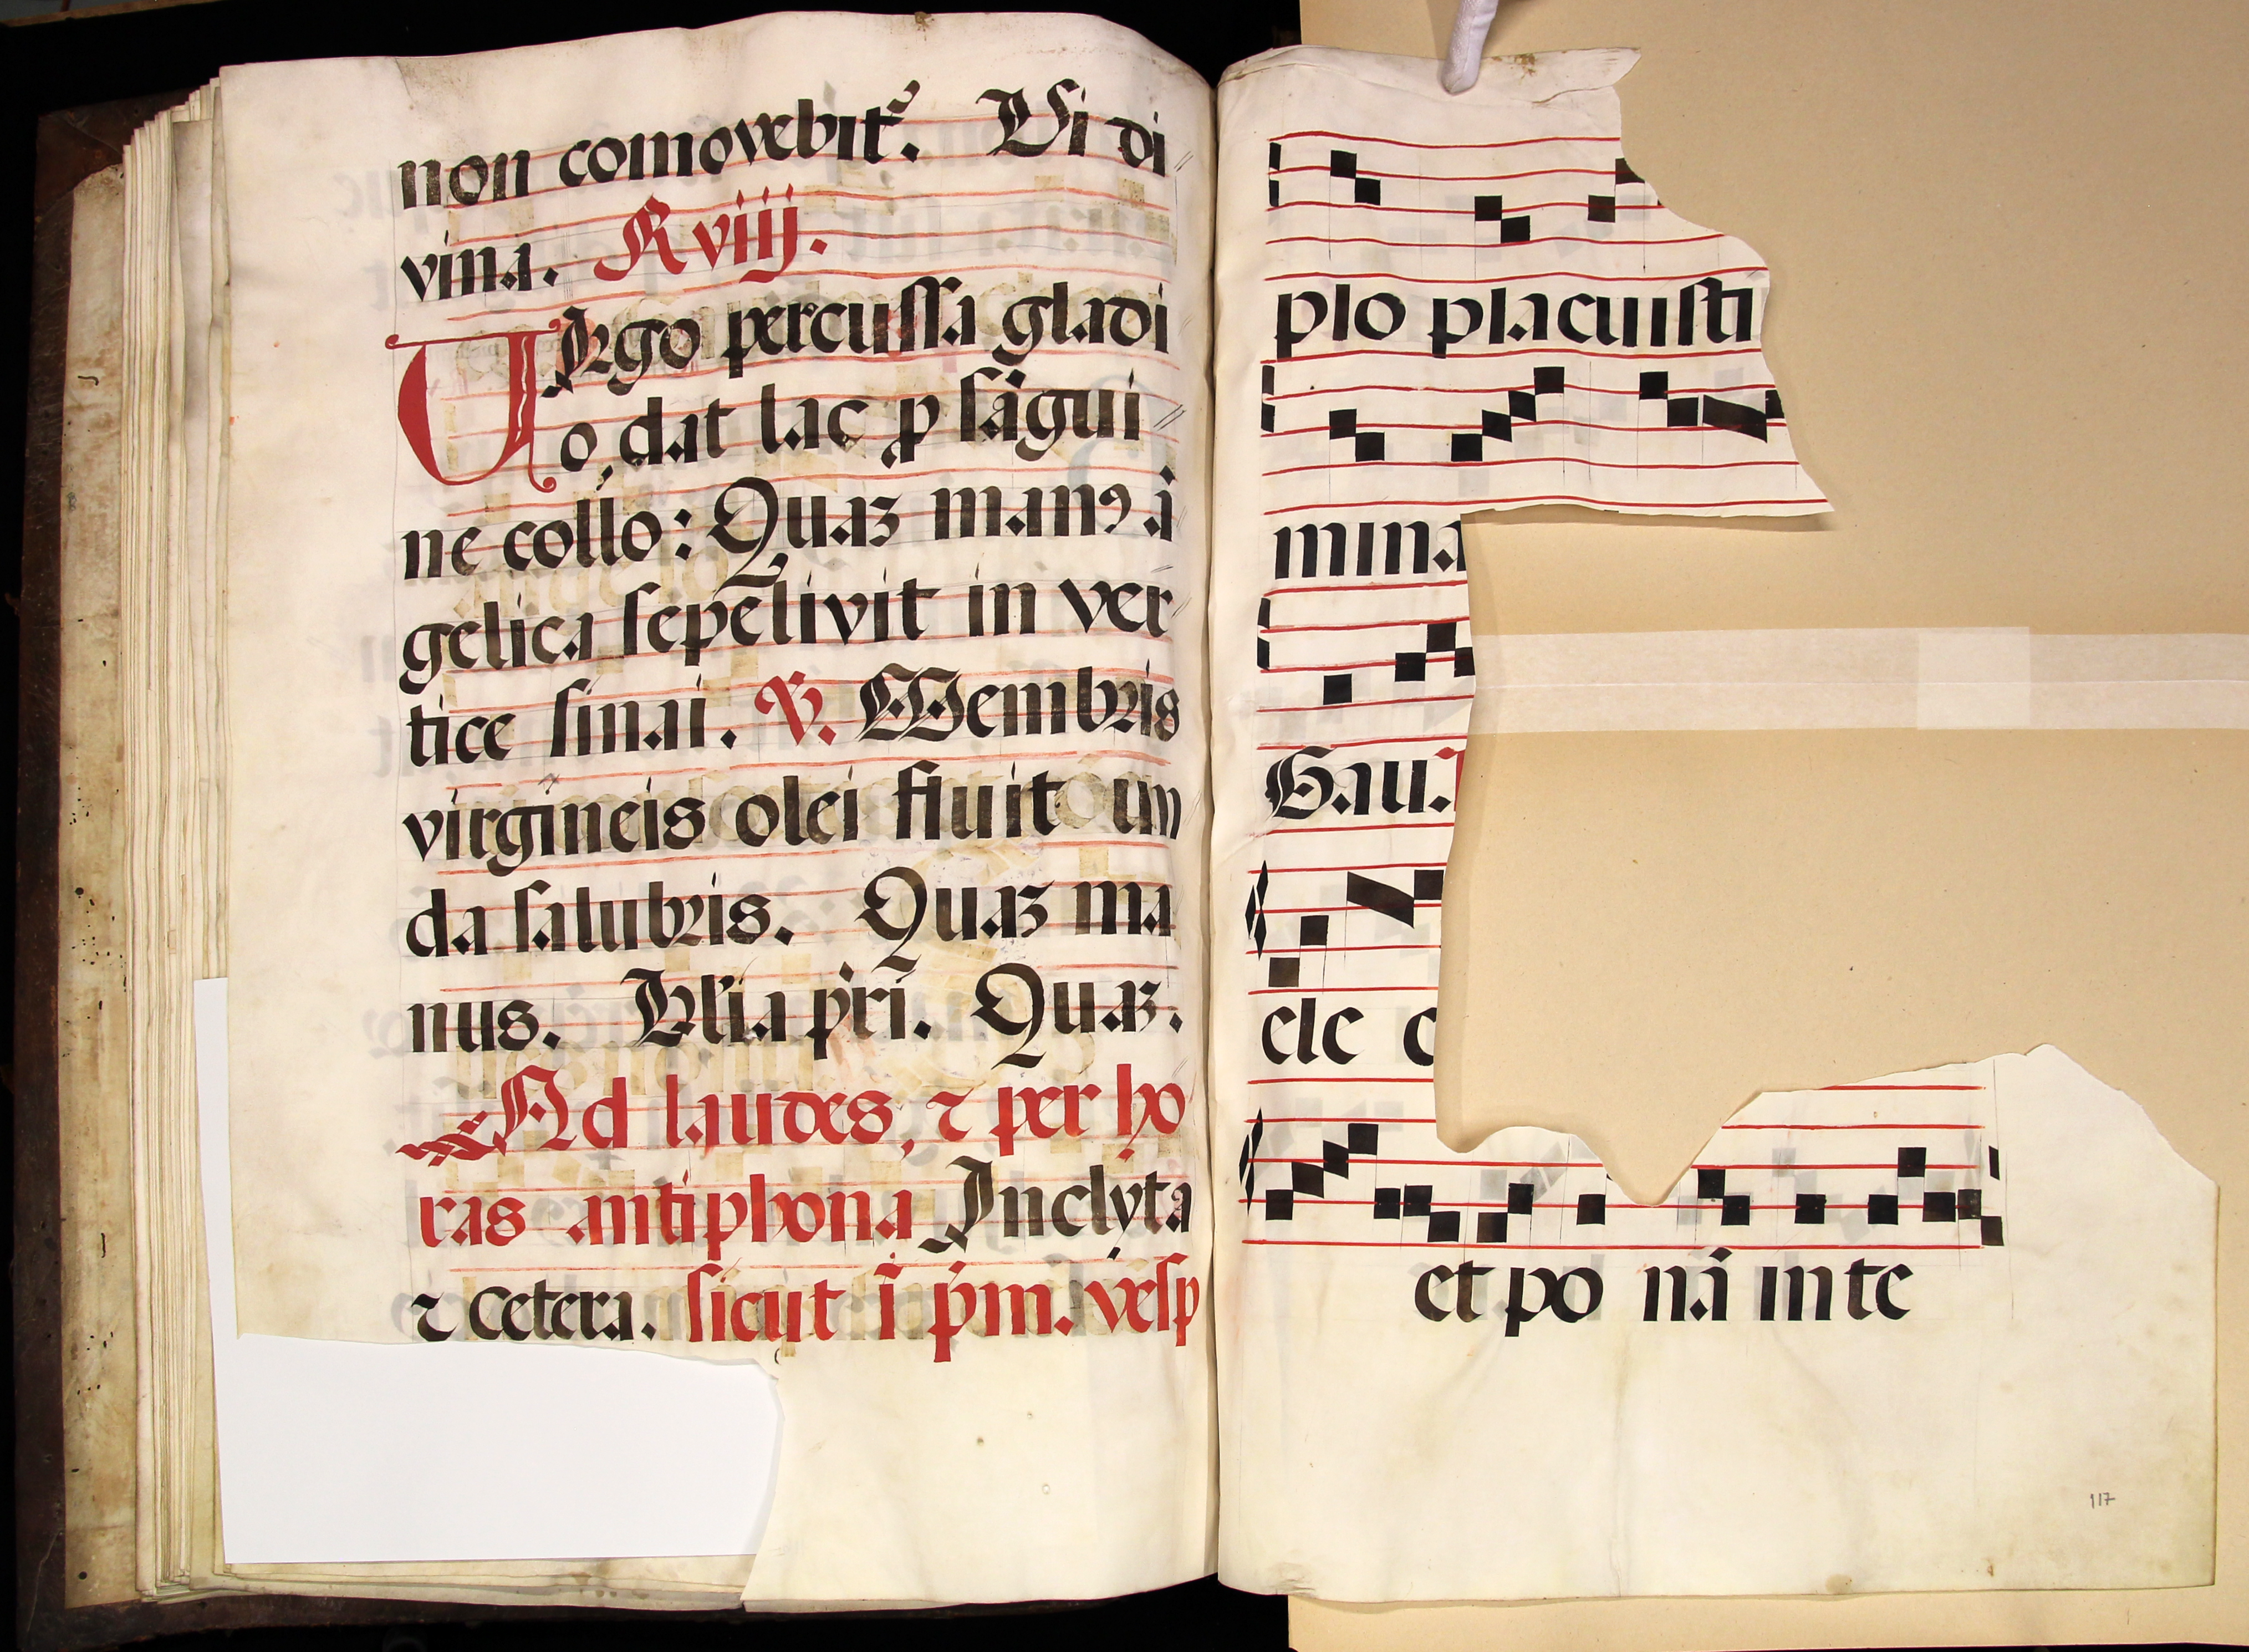 non comovebit᷑. Vi di
vina. R viij.
Virgo percussa gladi
o, dat lac p̱ sãgui
ne collo: Quaꝫ manꝰ ã
gelica sepelivit in ver
tice sinai. ℣. Membris
virgineis olei fluit un
da salubris. Quaꝫ ma
nus. Glia pri. Quaꝫ.
Ad laudes, ⁊ per ho
ras antiphona Inclyta
⁊ cetera. sicut ĩ pm. vesp
plo placuisti
mina
Gau.
ele c
et po nã in te
117